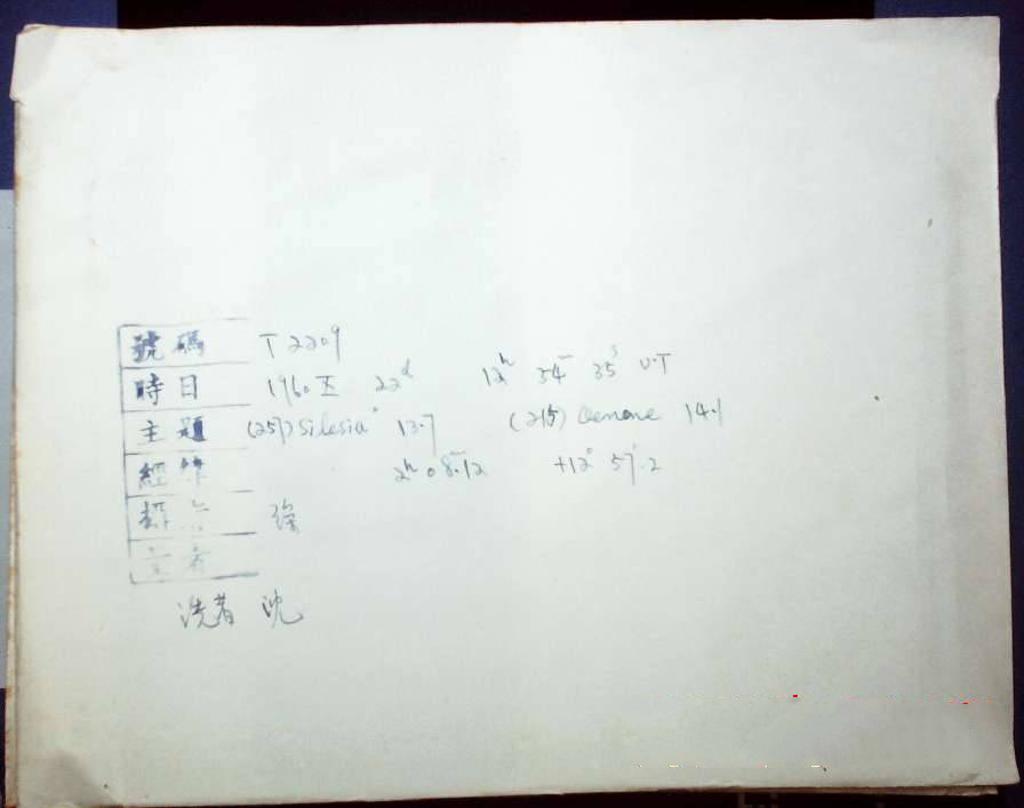 號碼 T2209
時日 1960 22ᵈ 12ʰ 54ᵐ 35ˢ U.T
主題 (257) Silesia 13.7 (215) Oenone 14.1
經緯 2ʰ 08ᵐ.12 +12° 57'.2
洗者 沈